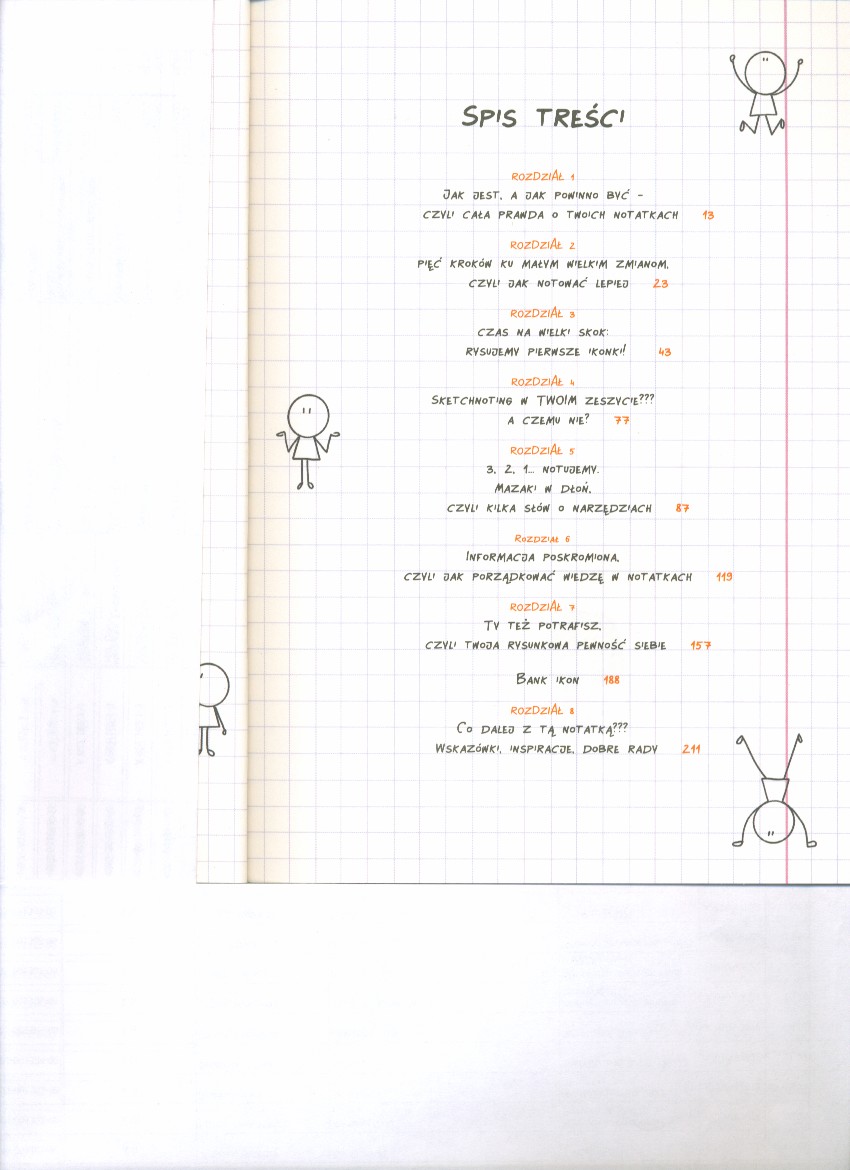 SPIS TREŚCI
ROZDZIAŁ 1
JAK JEST, A JAK POWINNO BYĆ -
CZYLI CAŁA PRAWDA O TWOICH NOTATKACH 13
ROZDZIAŁ 2
PIĘĆ KROKÓW KU MAŁYM WIELKIM ZMIANOM,
CZYLI JAK NOTOWAĆ LEPIEJ 23
ROZDZIAŁ 3
CZAS NA WIELKI SKOK:
RYSUJEMY PIERWSZE IKONKI! 43
ROZDZIAŁ 4
SKETCHNOTING W TWOIM ZESZYCIE???
A CZEMU NIE? 77
ROZDZIAŁ 5
3, 2, 1... NOTUJEMY.
MAZAKI W DŁOŃ,
CZYLI KILKA SŁÓW O NARZĘDZIACH 87
ROZDZIAŁ 6
INFORMACJA POSKROMIONA,
CZYLI JAK PORZĄDKOWAĆ WIEDZĘ W NOTATKACH 119
ROZDZIAŁ 7
TY TEŻ POTRAFISZ,
CZYLI TWOJA RYSUNKOWA PEWNOŚĆ SIEBIE 157
BANK IKON 188
ROZDZIAŁ 8
CO DALEJ Z TĄ NOTATKĄ???
WSKAZÓWKI, INSPIRACJE, DOBRE RADY 211